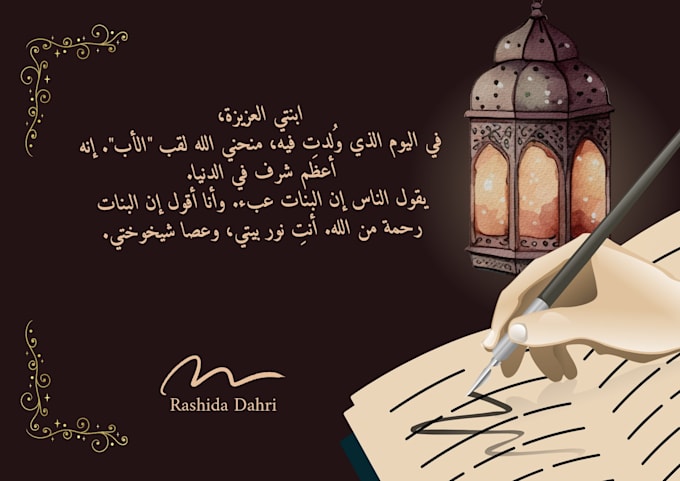 ابنتي العزيزة،
في اليوم الذي وُلدتِ فيه، منحني الله لقب "الأب". إنه
أعظم شرف في الدنيا.
يقول الناس إن البنات عبء. وأنا أقول إن البنات
رحمة من الله. أنتِ نور بيتي، وعصا شيخوختي.
Rashida Dahri